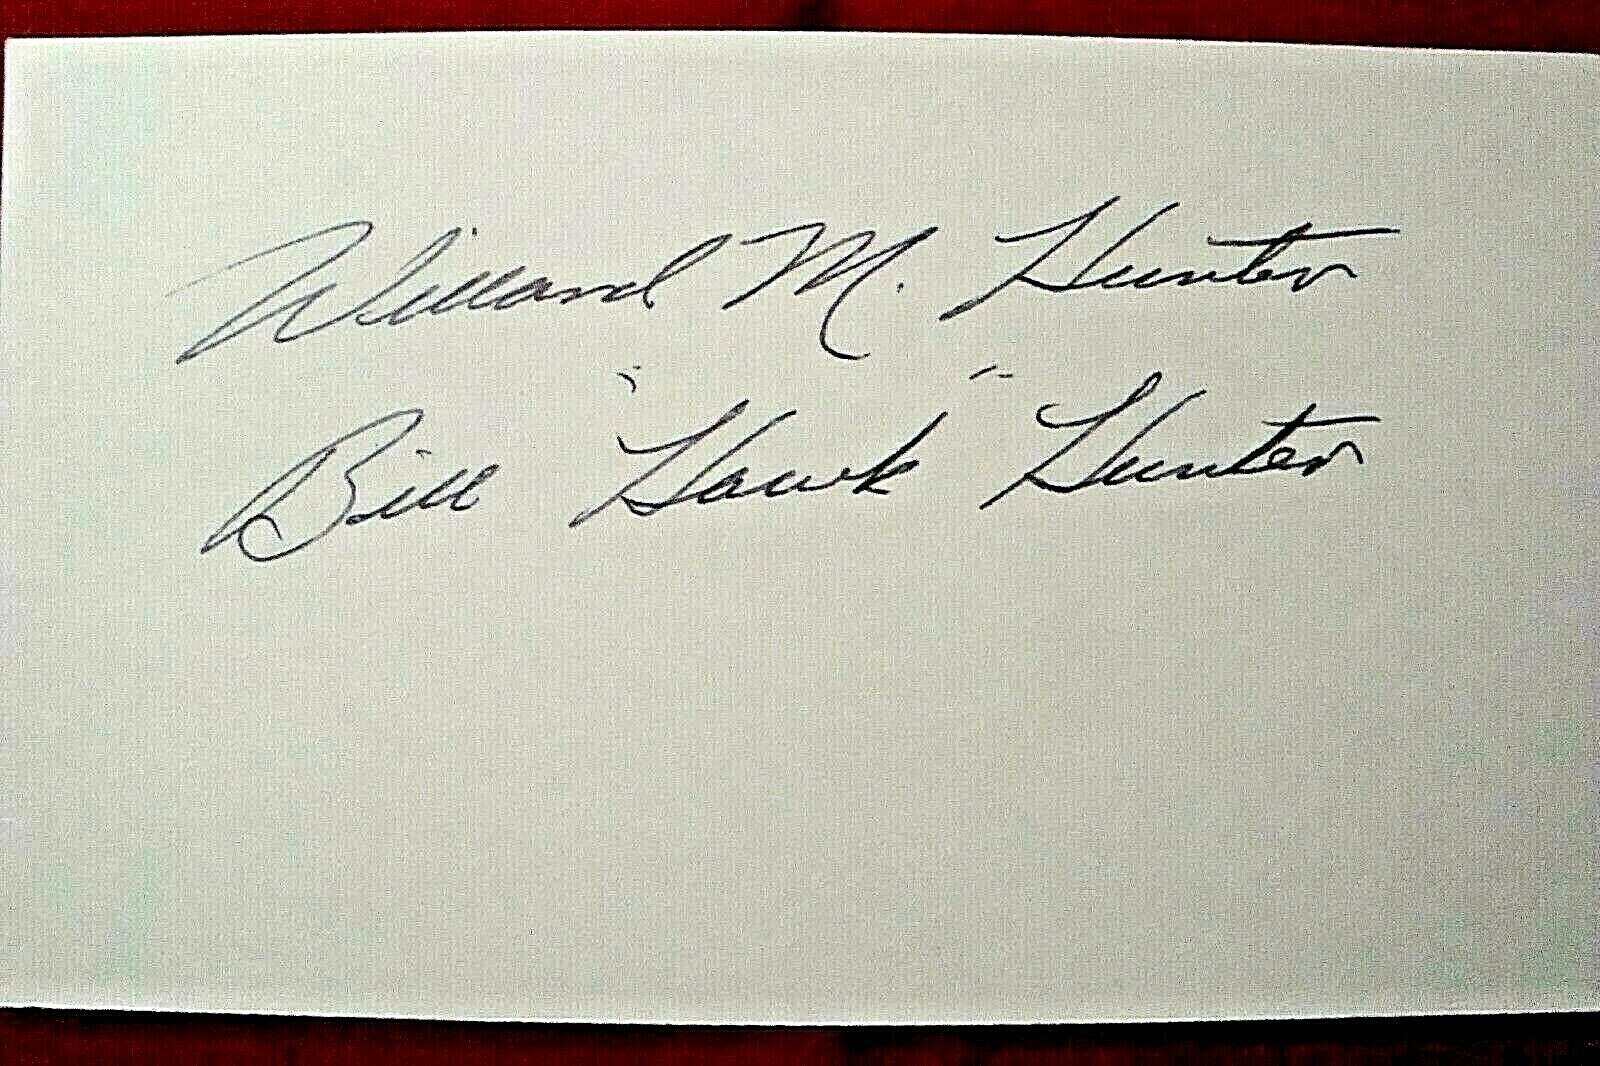 Willard M. Hunter
Bill "Hawk" Hunter